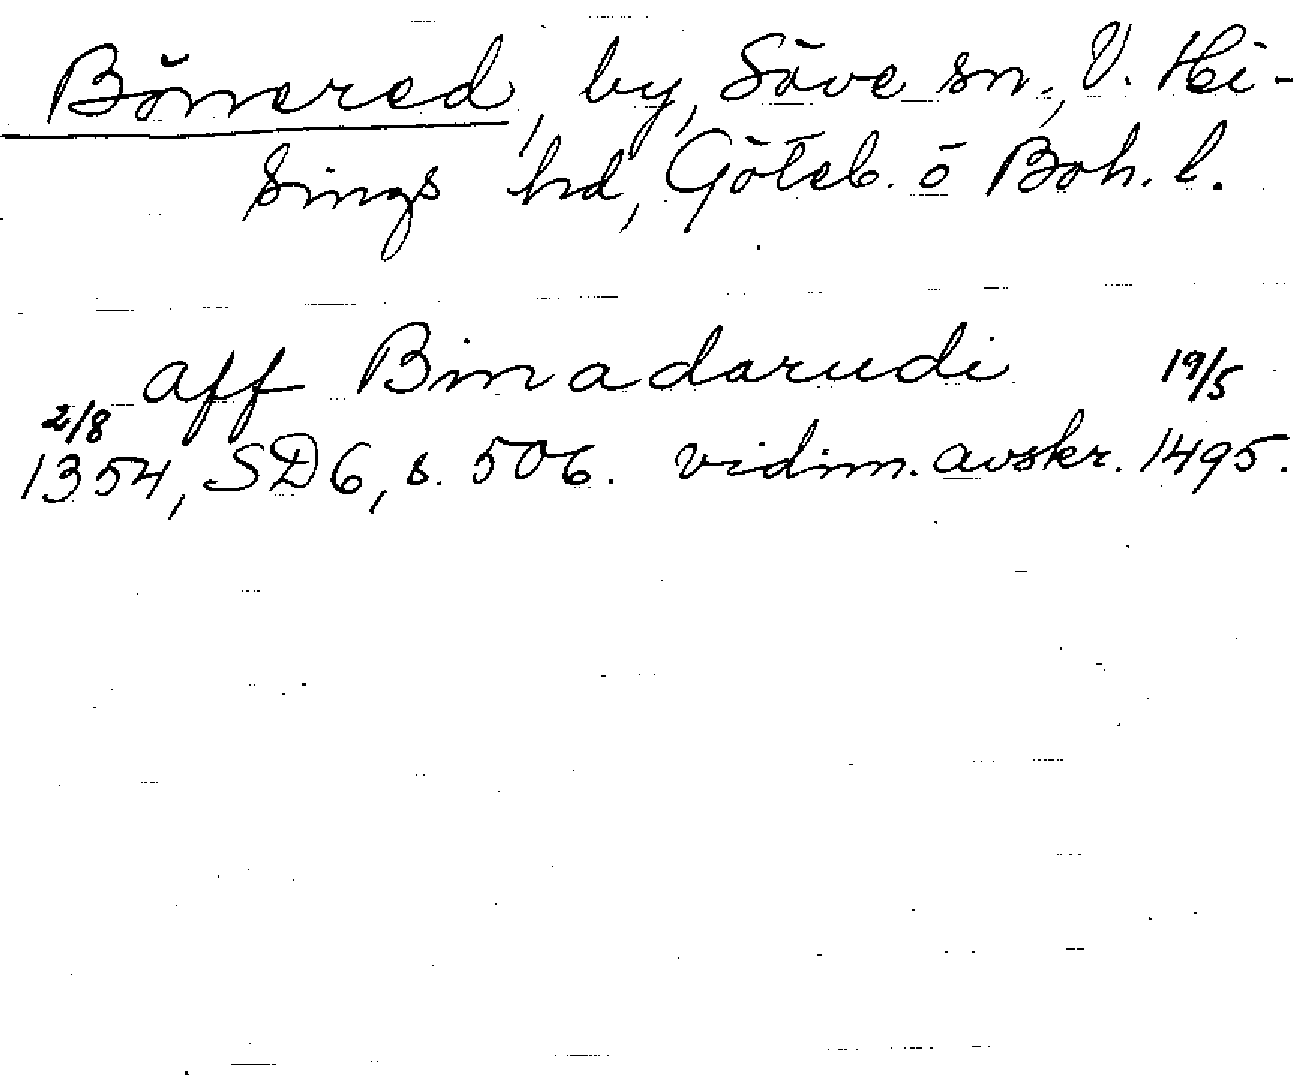 Bönered, by, Säve sn., V. Hi-
sings hd, Göteb. o Boh. l.
aff Binadarudi 19/5
2/8
1354, SD6, s. 506. vidim. avskr. 1495.